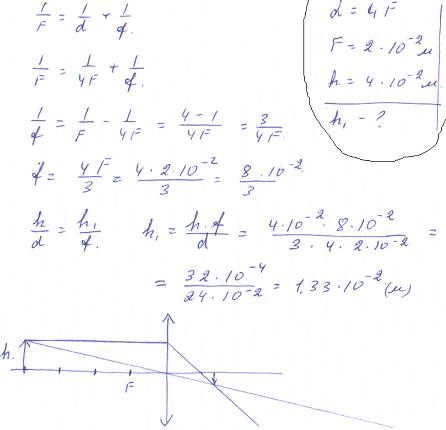 1/F = 1/d + 1/f.
1/F = 1/4F + 1/f.
1/f = 1/F - 1/4F = 4-1/4F = 3/4F.
f = 4F/3 = 4·2·10⁻²/3 = 8·10⁻²/3
h/d = h₁/f. h₁ = h·f/d = 4·10⁻²·8·10⁻²/3·4·2·10⁻² =
= 32·10⁻⁴/24·10⁻² = 1,33·10⁻² (м)
d = 4F
F = 2·10⁻² м
h = 4·10⁻² м
h₁ - ?
h.
F